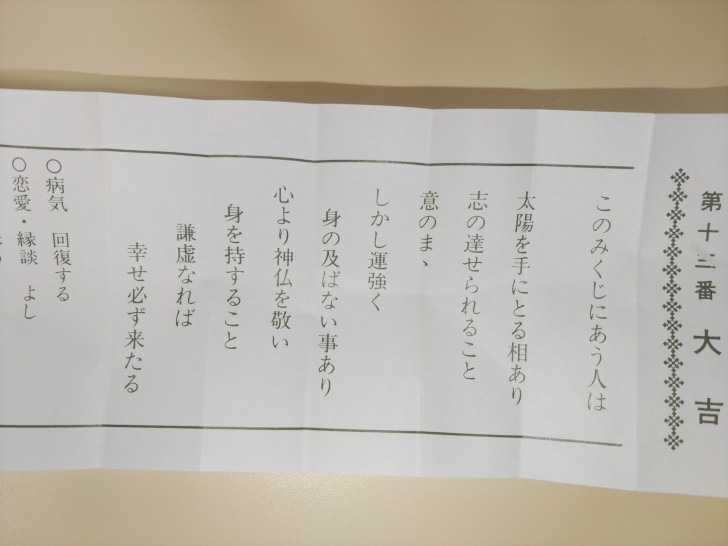 第十三番 大吉
このみくじにあう人は
太陽を手にとる相あり
志の達せられること
意のまゝ
しかし運強く
身の及ばない事あり
心より神仏を敬い
身を持すること
謙虚なれば
幸せ必ず来たる
○病気 回復する
○恋愛・縁談 よし